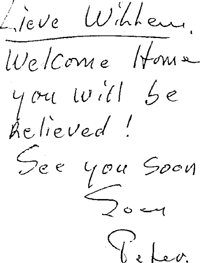 Lieve Willem.
Welcome Home
you will be
Relieved!
See you Soon
Peter.